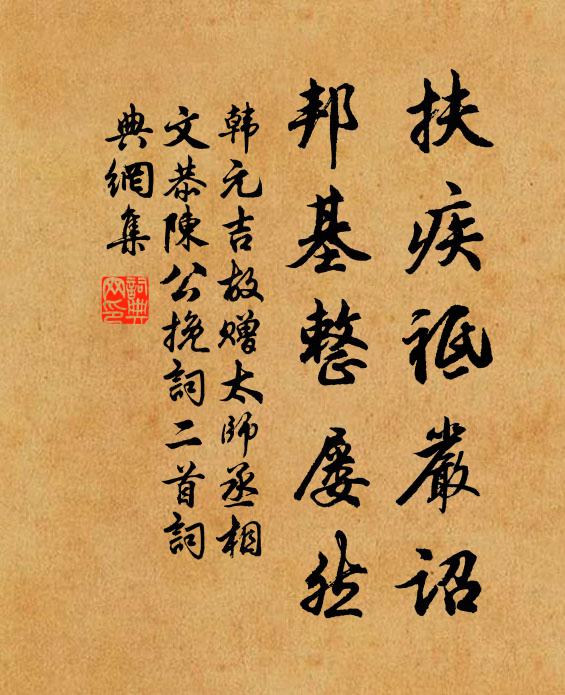 扶疾祗嚴詔
邦基整屡然
韩元吉故赠太師丞相
文恭陳公挽詞二首詞
典網集
詞典網印